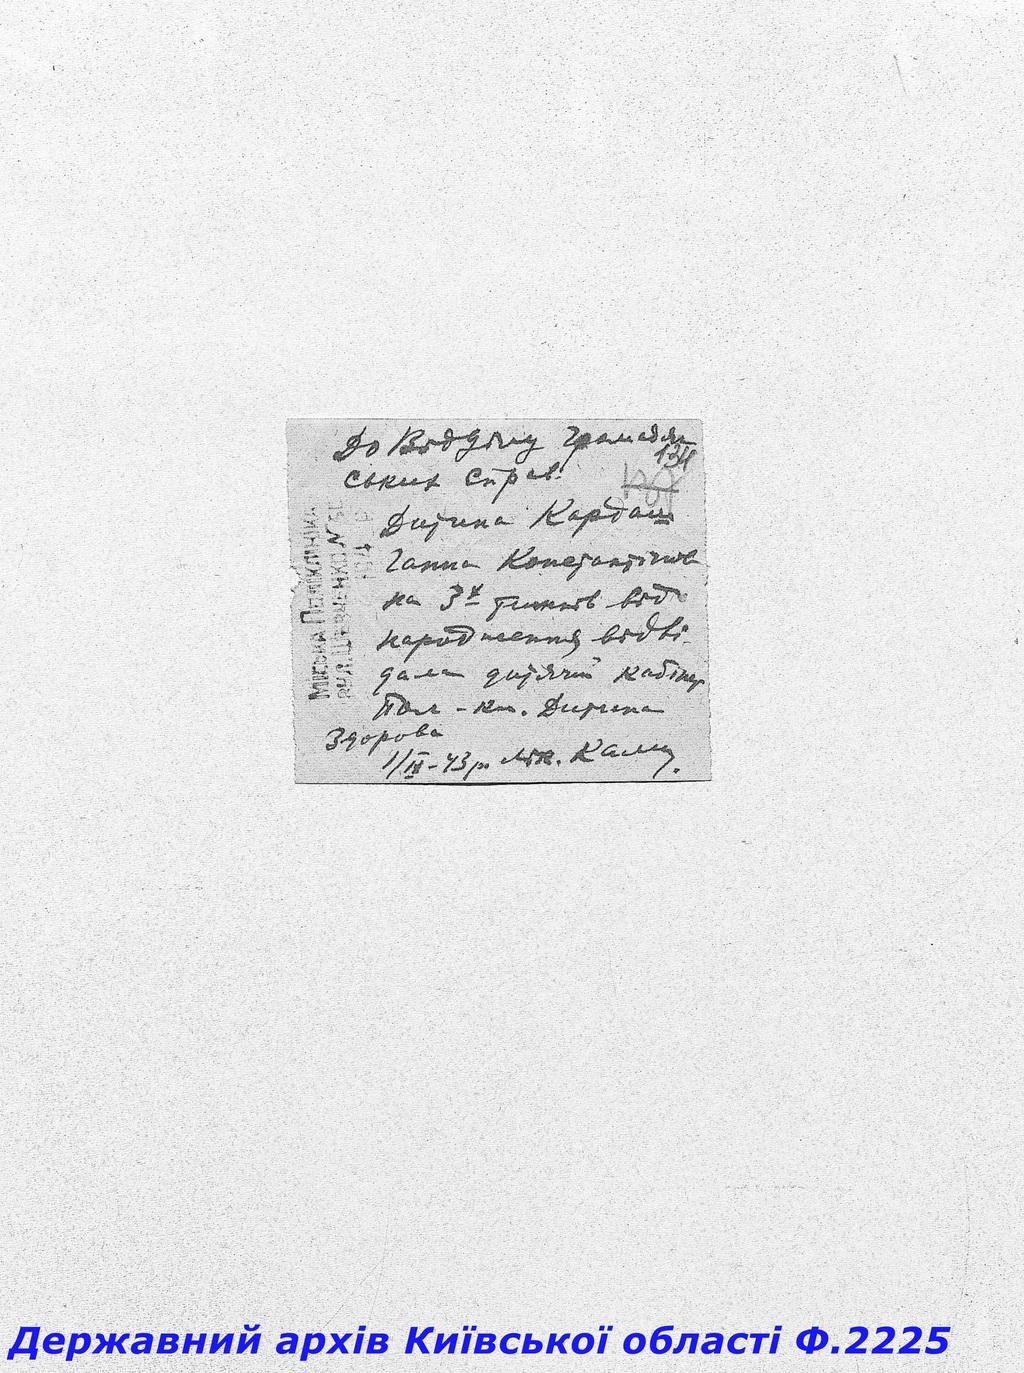 До Відділу громадян
134
ських справ.
Дитина Кардаш
Ганна Константінов
на 3х тижнів від
народження відві-
дала дитячій кабінет
Пол-кл. Дитина
Здорова
1/IV-43р. лік.
МІСЬКА ПОЛІКЛІНІКА
ВУЛ. ШЕВЧЕНКО №
194 р
Державний архів Київської області Ф.2225